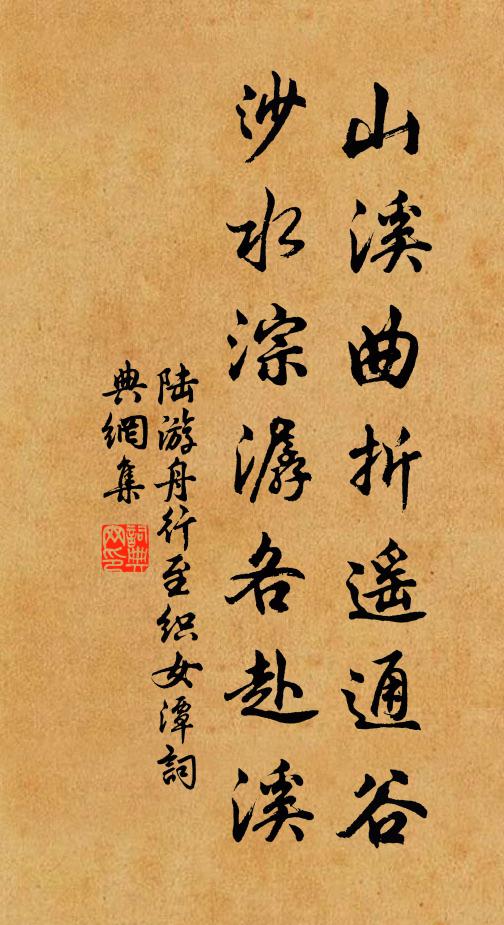 山溪曲折遥通谷
沙水淙潺各赴溪
陆游舟行至织女潭詞
典網集
詞典网印